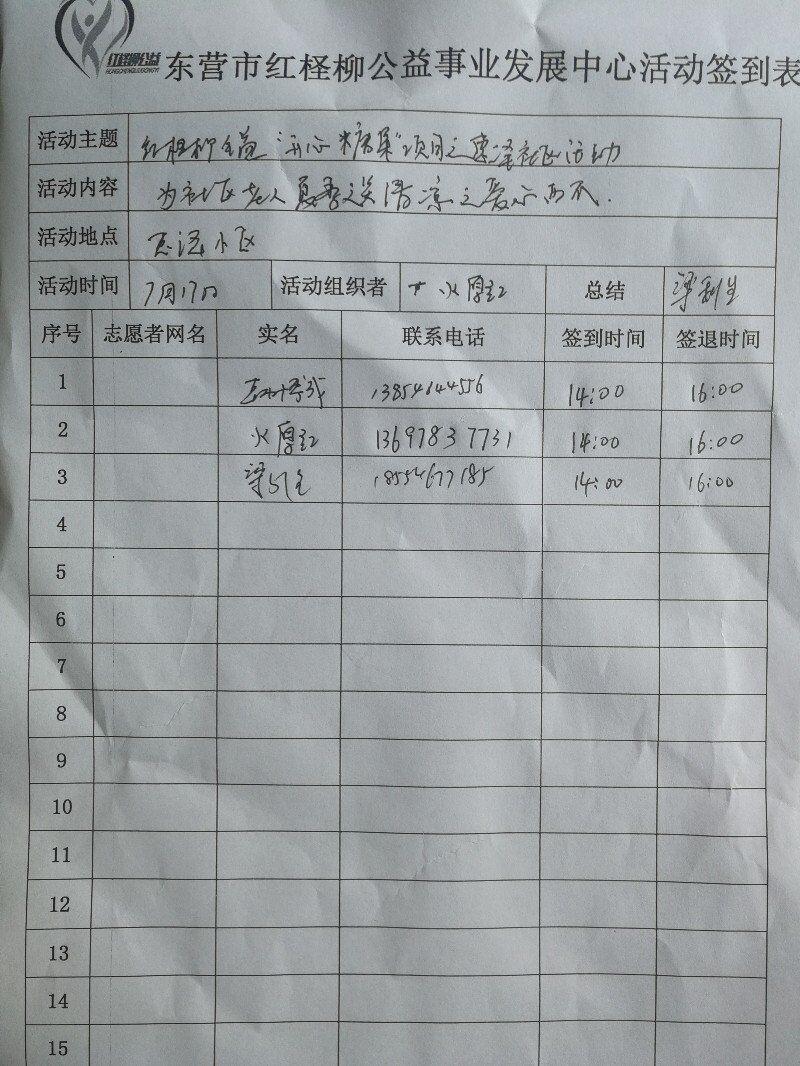 红柽柳公益
HONGCHENGLIUGONGYI
东营市红柽柳公益事业发展中心活动签到表
活动主题 红柽柳公益"开心糖果"项目之惠泽社区活动
活动内容 为社区老人夏季送清凉之爱心西瓜.
活动地点 小区
活动时间 7月17日 活动组织者 火厚红 总结
序号 志愿者网名 实名 联系电话 签到时间 签退时间
1 13854644556 14:00 16:00
2 火厚红 13697837731 14:00 16:00
3 梁 18554677185 14:00 16:00
4
5
6
7
8
9
10
11
12
13
14
15